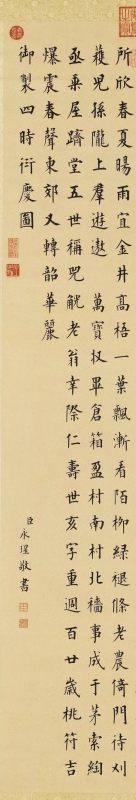 所欣春夏暘雨宜金井高梧一葉飄漸看陌柳綠褪條老農倚門待刈
穫兒孫隴上羣遊遨 萬寶收畢倉箱盈村南村北穡事成于茅索綯
亟乘屋躋堂五世稱兕觥老翁幸際仁壽世亥字重週百廿歲桃符吉
爆震春聲東郊又轉韶華麗
御製四時衍慶圖
臣永瑆敬書